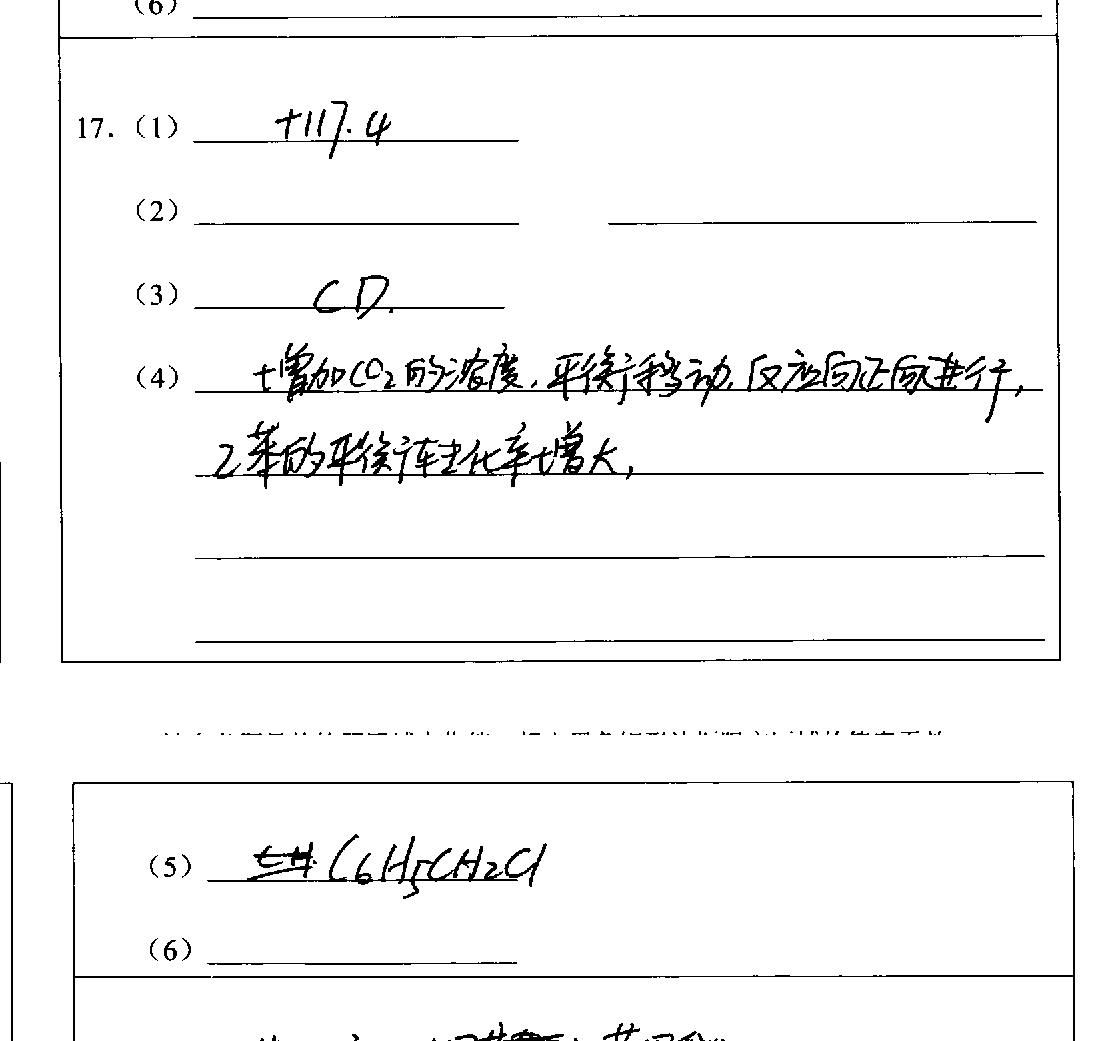 (6)
17.（1） +117.4
（2）
（3） CD.
（4） 增加CO₂的浓度，平衡移动，反应向正向进行，
乙苯的平衡转化率增大，
（5） C₆H₅CH₂Cl
（6）